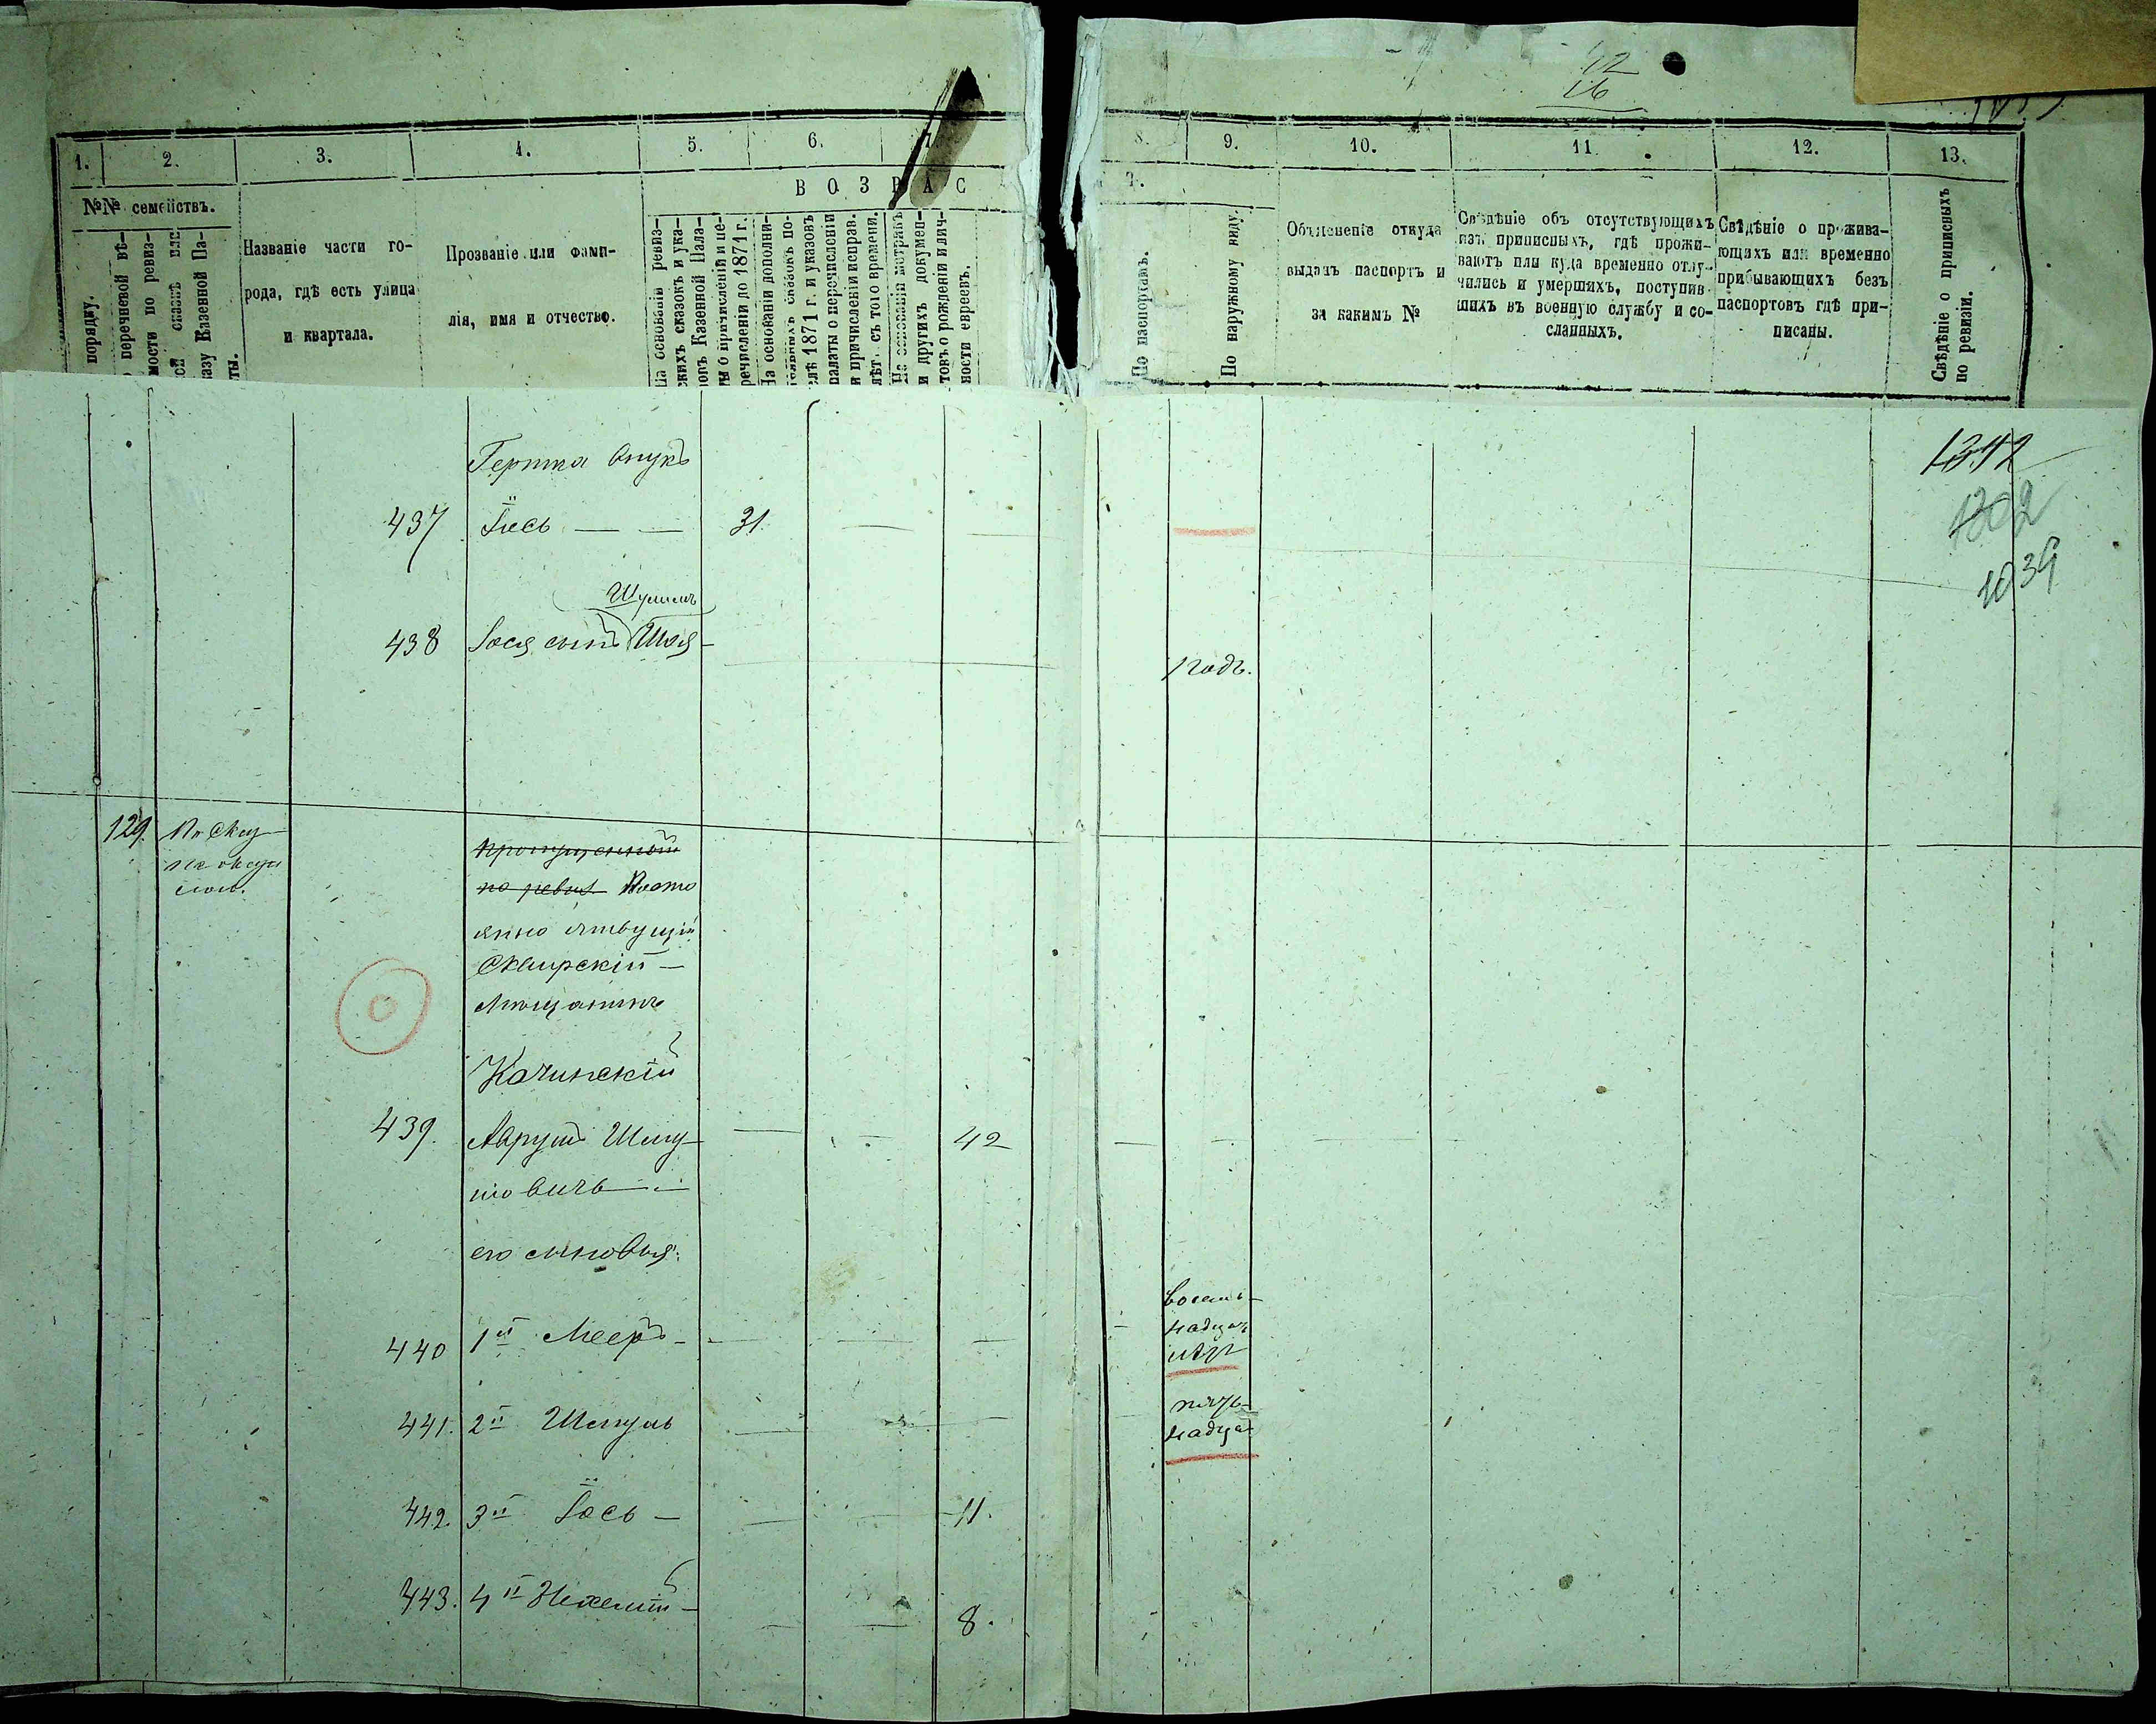 12
16
1. 2. 3. 4. 5. 6. 7. 8. 9. 10. 11. 12. 13.
В О З Р А С Т.
№№ семействъ.
порядку.
перечневой вѣ-
мости по ревиз-
ской сказкѣ или
казу Казенной Па-
ты.
Названіе части го-
рода, гдѣ есть улица
и квартала.
Прозваніе или фами-
лія, имя и отчество.
На основаніи ревиз-
скихъ сказокъ и ука-
зовъ Казенной Пала-
ты о причисленіи и пе-
речисленіи до 1871 г.
На основаніи дополни-
тельныхъ сказокъ по-
слѣ 1871 г. и указовъ
палаты о перечисленіи
и причисленіи исправ.
лѣтъ съ того времени.
На основаніи метрикъ
и другихъ докумен-
товъ о рожденіи и лич-
ности евреевъ.
По паспортамъ.
По наружному виду.
Объясненіе откуда
выданъ паспортъ и
за какимъ №
Свѣдѣніе объ отсутствующихъ
изъ приписныхъ, гдѣ прожи-
ваютъ или куда временно отлу-
чились и умершихъ, поступив
шихъ въ военную службу и со-
сланныхъ.
Свѣдѣніе о прожива-
ющихъ или временно
прибывающихъ безъ
паспортовъ гдѣ при-
писаны.
Свѣдѣніе о приписныхъ
по ревизіи.
1342
1302
1039
Гершка внукъ
437 Іось — — 31.
Шулимъ
438 Іося сынъ Шоя —
1 годъ.
129. По Ска-
пропущенный
по ревиз. Посто
янно живущій
Сквирскій —
мѣщанинъ
Качинскій
439. Аврумъ Шму-
левичъ — 42
его сыновья:
440 1й Мееръ —
восем-
надцать
лѣтъ
441. 2й Шмуль
пять-
надца-
442. 3й Іось — 11.
443. 4й Нехемій — 8.